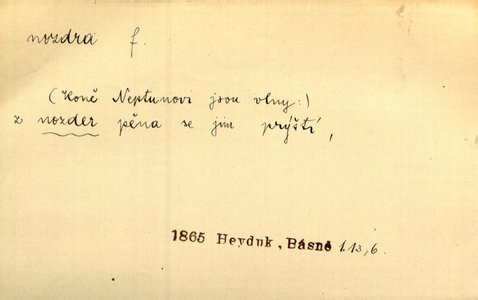 nozdra f.
(Koně Neptunovi jsou vlny:)
z nozder pěna se jim prýští,
1865 Heyduk, Básně 1.13,6.